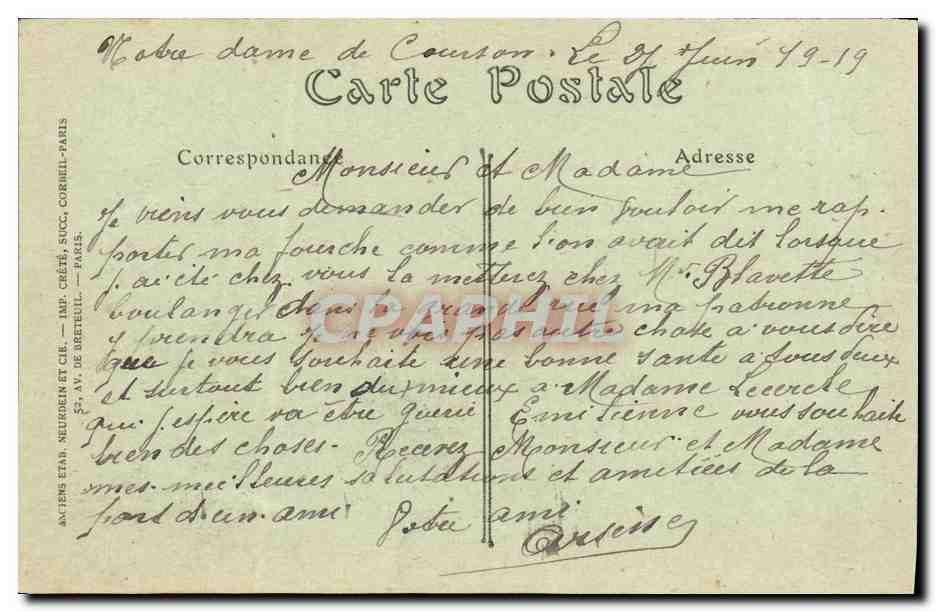 Notre dame de Courson. Le 21 Juin 1919
Carte Postale
Correspondance
Adresse
Monsieur et Madame
Je viens vous demander de bien vouloir me rap-
porter ma fourche comme l'on avait dit lorsque
j'ai été chez vous la metterez chez Mr Blavette
boulanger dans la grande rue ma patronne
y prendra je ne vois pas autre chose a vous dire
que je vous souhaite une bonne sante a tous deux
et surtout bien du mieux a Madame Lecercle
qui j'espère va être gueri Emilienne vous souhaite
bien des choses. Recevez Monsieur et Madame
mes meilleures salutations et amitiées de la
part d'un ami Votre ami
Arsène
ANCIENS ETAB. NEURDEIN ET CIE. — IMP. CRÉTÉ, SUCC, CORBEIL-PARIS
52, AV. DE BRETEUIL. — PARIS.
CPAPHIL